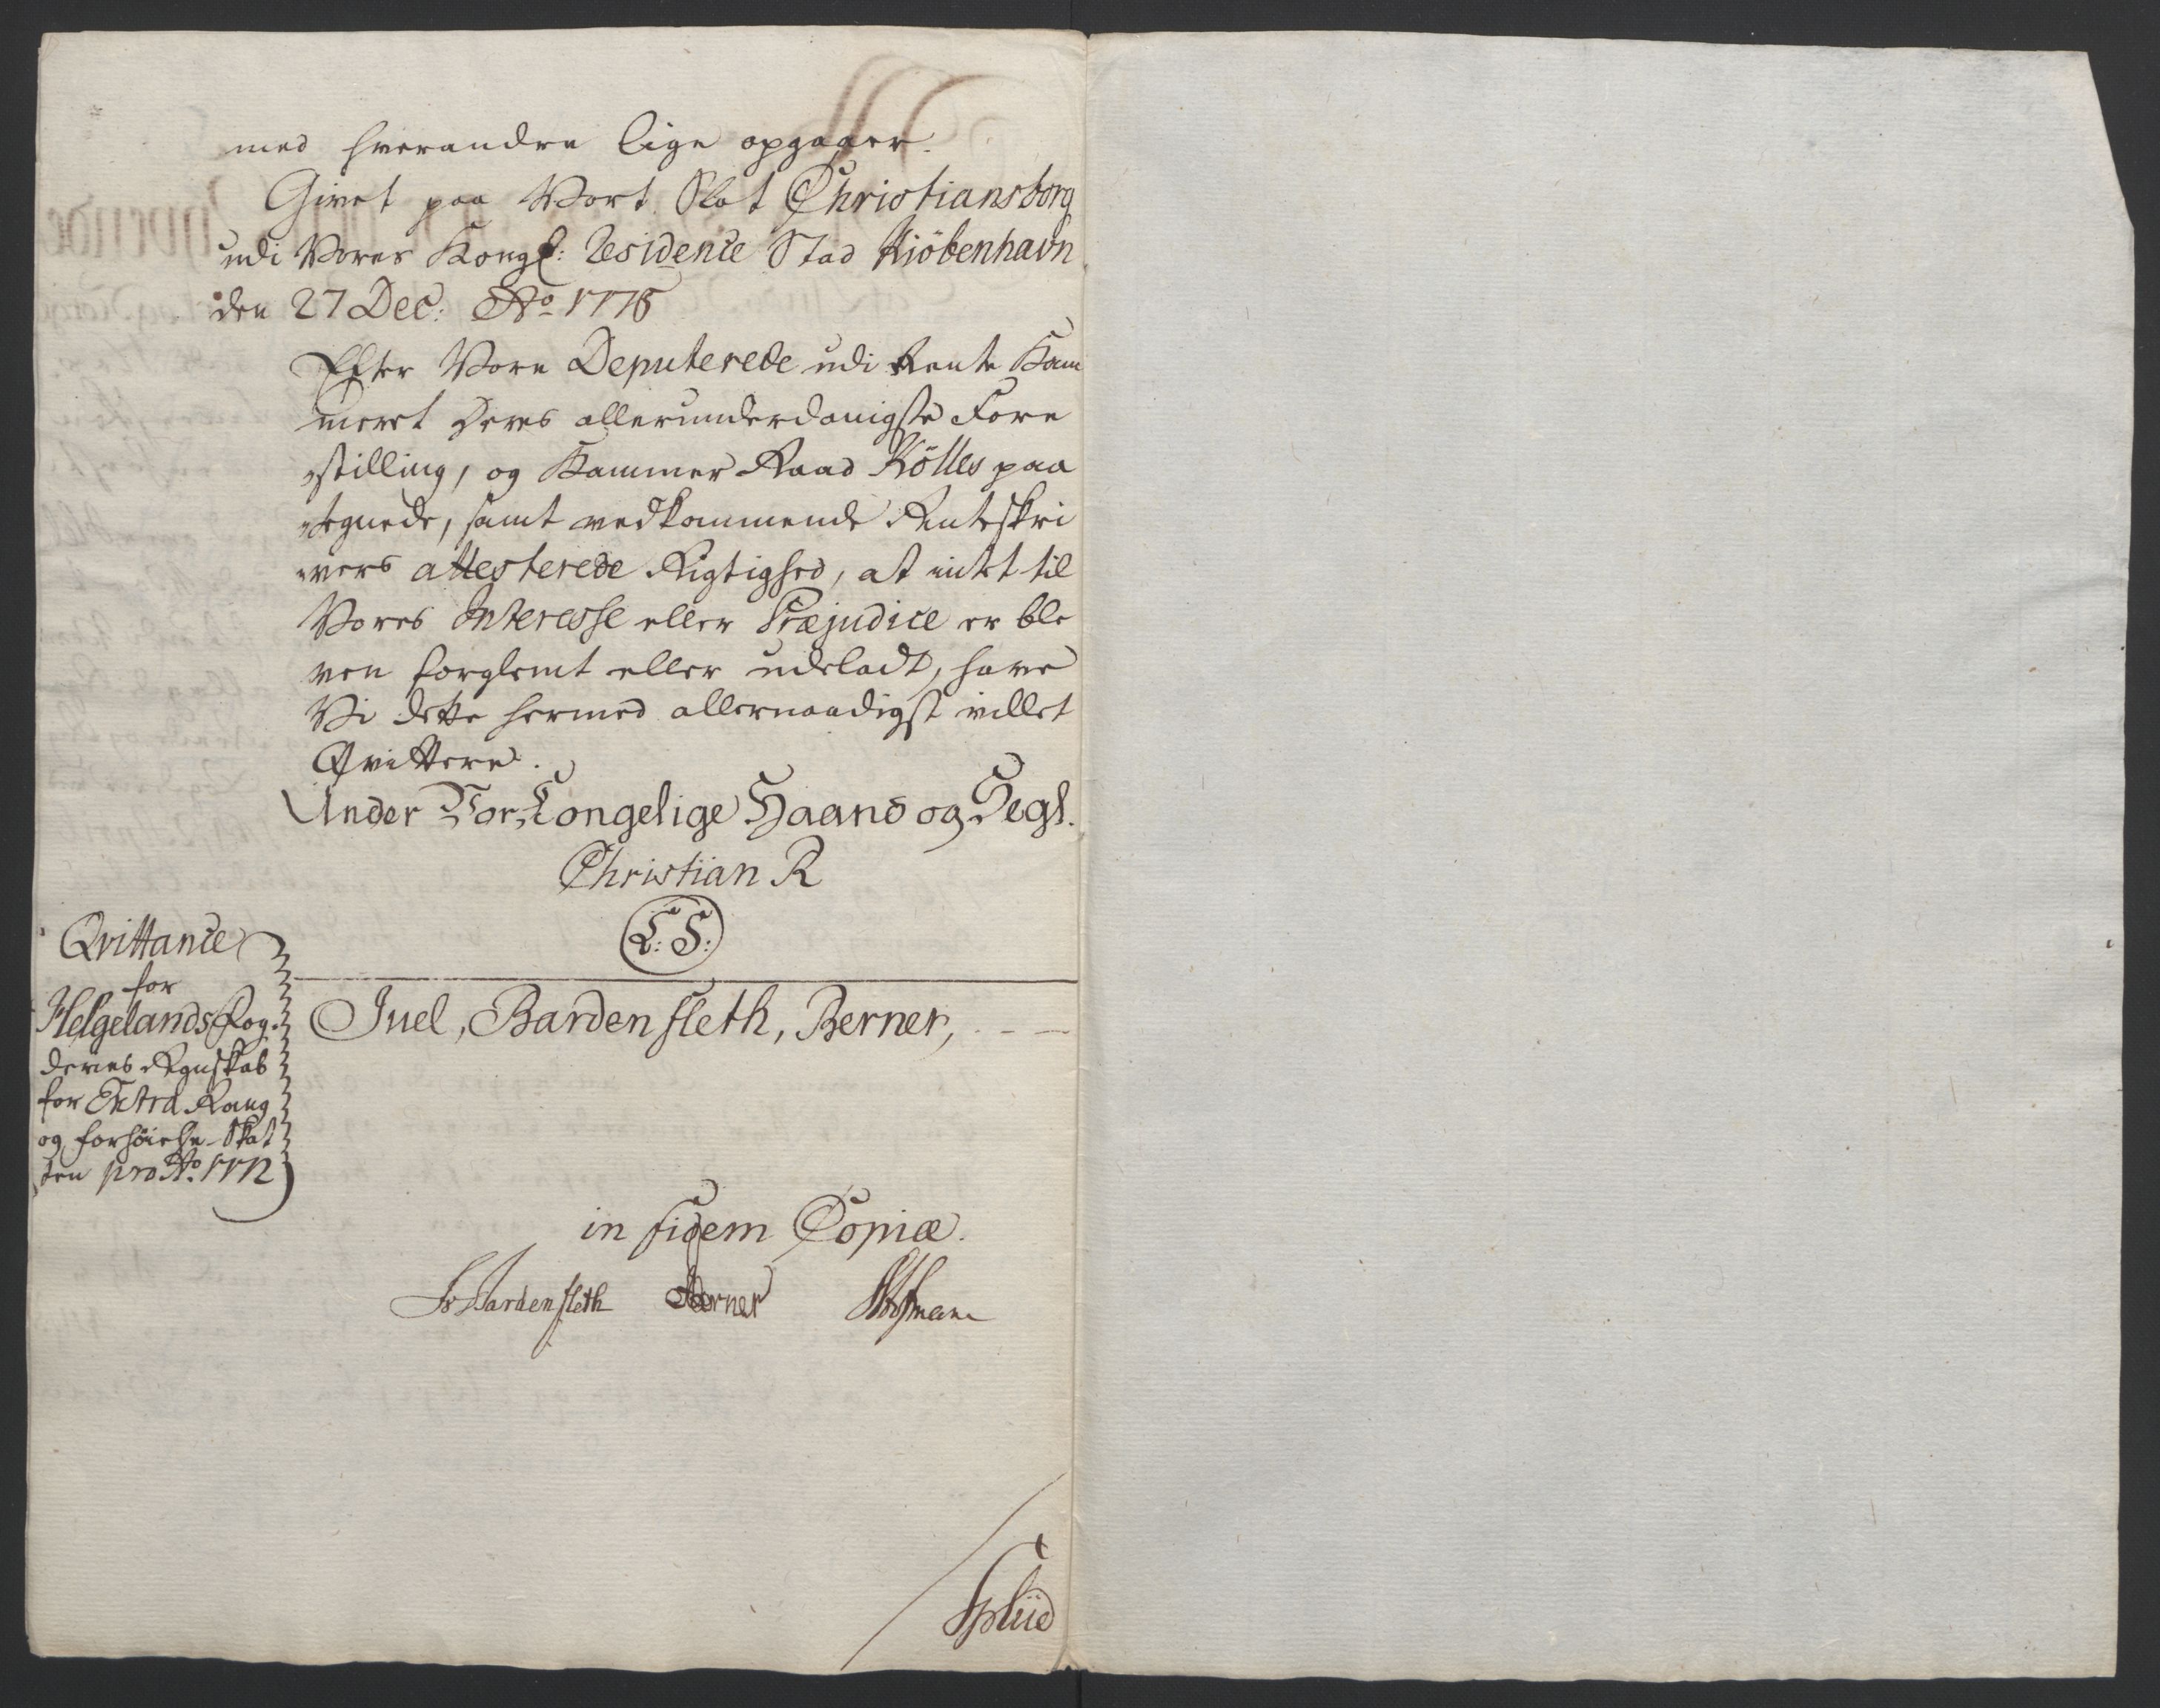 med hverandre lige opgaaer.
Givet paa Vort Slot Christiansborg
udi Vores Kongl: Residence Stad Kiöbenhavn
den 27 Dec: Ao 1775
Efter Vore Deputerede udi Rente Kam
meret Deres allerunderdanigste Fore
stilling, og Kammer Raad Kölles paa
tegnede, samt vedkommende Renteskri
vers attesterede Rigtighed, at intet til
Vores Interesse eller Præjudice er ble
ven forglemt eller udeladt, have
Vi dette hermed allernaadigst villet
Qvittere.
Under Vor Kongelige Haand og Segl.
Christian R
L: S:
Juel, Bardenfleth, Berner,
Qvittance
for
Helgelands Fog
deries Regnskab
for Extra Rang
og Forhöielse-Skat
ten pro Ao. 1772
in fidem Copiæ.
Bardenfleth Berner